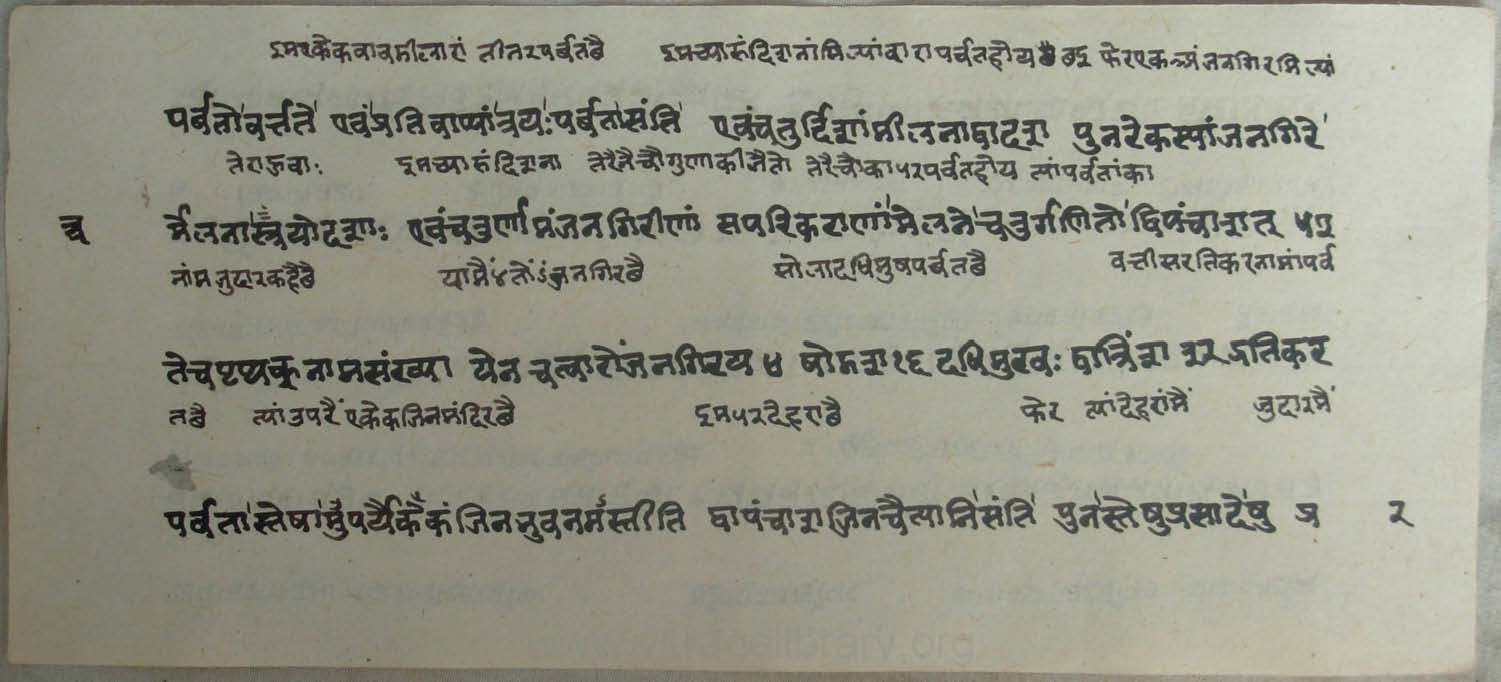 इमएकेकवावमीलारां तीनरपर्वतछै इमच्यारुंदिशानांमिल्यांबारापर्वतहोय छै फेरएकअंजनगिरमिल्यां
पर्वतोवर्त्तते एवंप्रतिवाप्यांत्रयःपर्वतासंति एवंचतुर्दिशांमीलनाद्वादश पुनरेकस्यांजनगिरे
तेराहुवाः इमच्यारुंदिशाना तेरैनैचौगुणाकीजैतो तेरैचोका५२पर्वतहोय त्यांपर्वतांका
र्मेलनास्त्रयोदशाः एवंचतुर्णामंजनगिरीणां सपरिकराणांमेलनेचतुर्गणितोद्विपंचाशत् ५२
नांमजुदारकहैछै यामैं४तोअंजनगिरछै सोलादधिमुषपर्वतछै बत्तीसरतिकरनामांपर्व
तेचपृथक्नामसंख्या येनचत्वारोंजनगिरय ४ षोडश१६दधिमुखः द्वात्रिंश ३२रतिकर
तछै त्यांउपरैंएकेकजिनमंदिरछै इम५२देहरांछै फेर त्यांदेहरांमैं जुदारमैं
पर्वतास्तेषामुपर्यैकैकंजिनभुवनमस्तीति द्वापंचाशजिनचैत्यानिसंति पुनस्तेषुप्रसादेषु प्र २